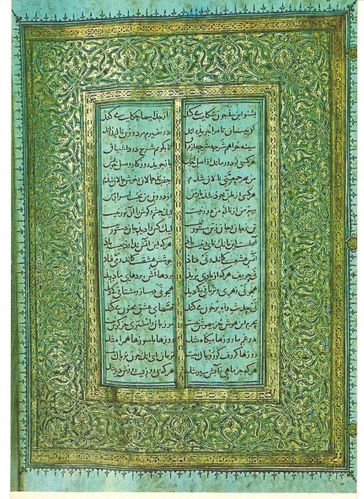 بشنو از نی چون حکایت میکند از جداییها شکایت میکند
کز نیستان تا مرا ببریده اند در نفیرم مرد و زن نالیده اند
شرحه شرحه از فراق تا بگویم شرح درد اشتیاق
هر کسی کو دور ماند از اصل خویش باز جوید روزگار وصل خویش
من بهر جمعیتی نالان شدم جفت بدحالان و خوش حالان شدم
هر کسی از ظن خود شد یار من از درون من نجست اسرار من
سر من از ناله من دور نیست لیک چشم و گوش را آن نور نیست
تن ز جان و جان ز تن مستور نیست لیک کس را دید جان دستور نیست
آتش است این بانگ نای و نیست باد هر که این آتش ندارد نیست باد
آتش عشقست کاندر نی فتاد جوشش عشقست کاندر می فتاد
نی حریف هر که از یاری برید پرده هایش پرده های ما درید
همچو نی زهری و تریاقی که دید همچو نی دمساز و مشتاقی که دید
نی حدیث راه پر خون میکند قصه های عشق مجنون میکند
محرم این هوش جز بیهوش نیست مر زبان را مشتری جز گوش نیست
در غم ما روزها بیگاه شد روزها با سوزها همراه شد
روزها گر رفت گو رو باک نیست تو بمان ای آنکه چون تو پاک نیست
هر که جز ماهی ز آبش سیر شد هر که بی روزیست روزش دیر شد